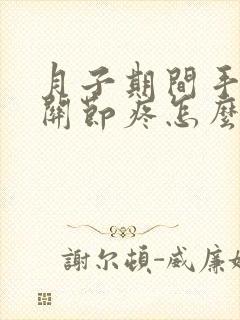 月子期間手
關節疼怎麼
謝尔頓-威廉